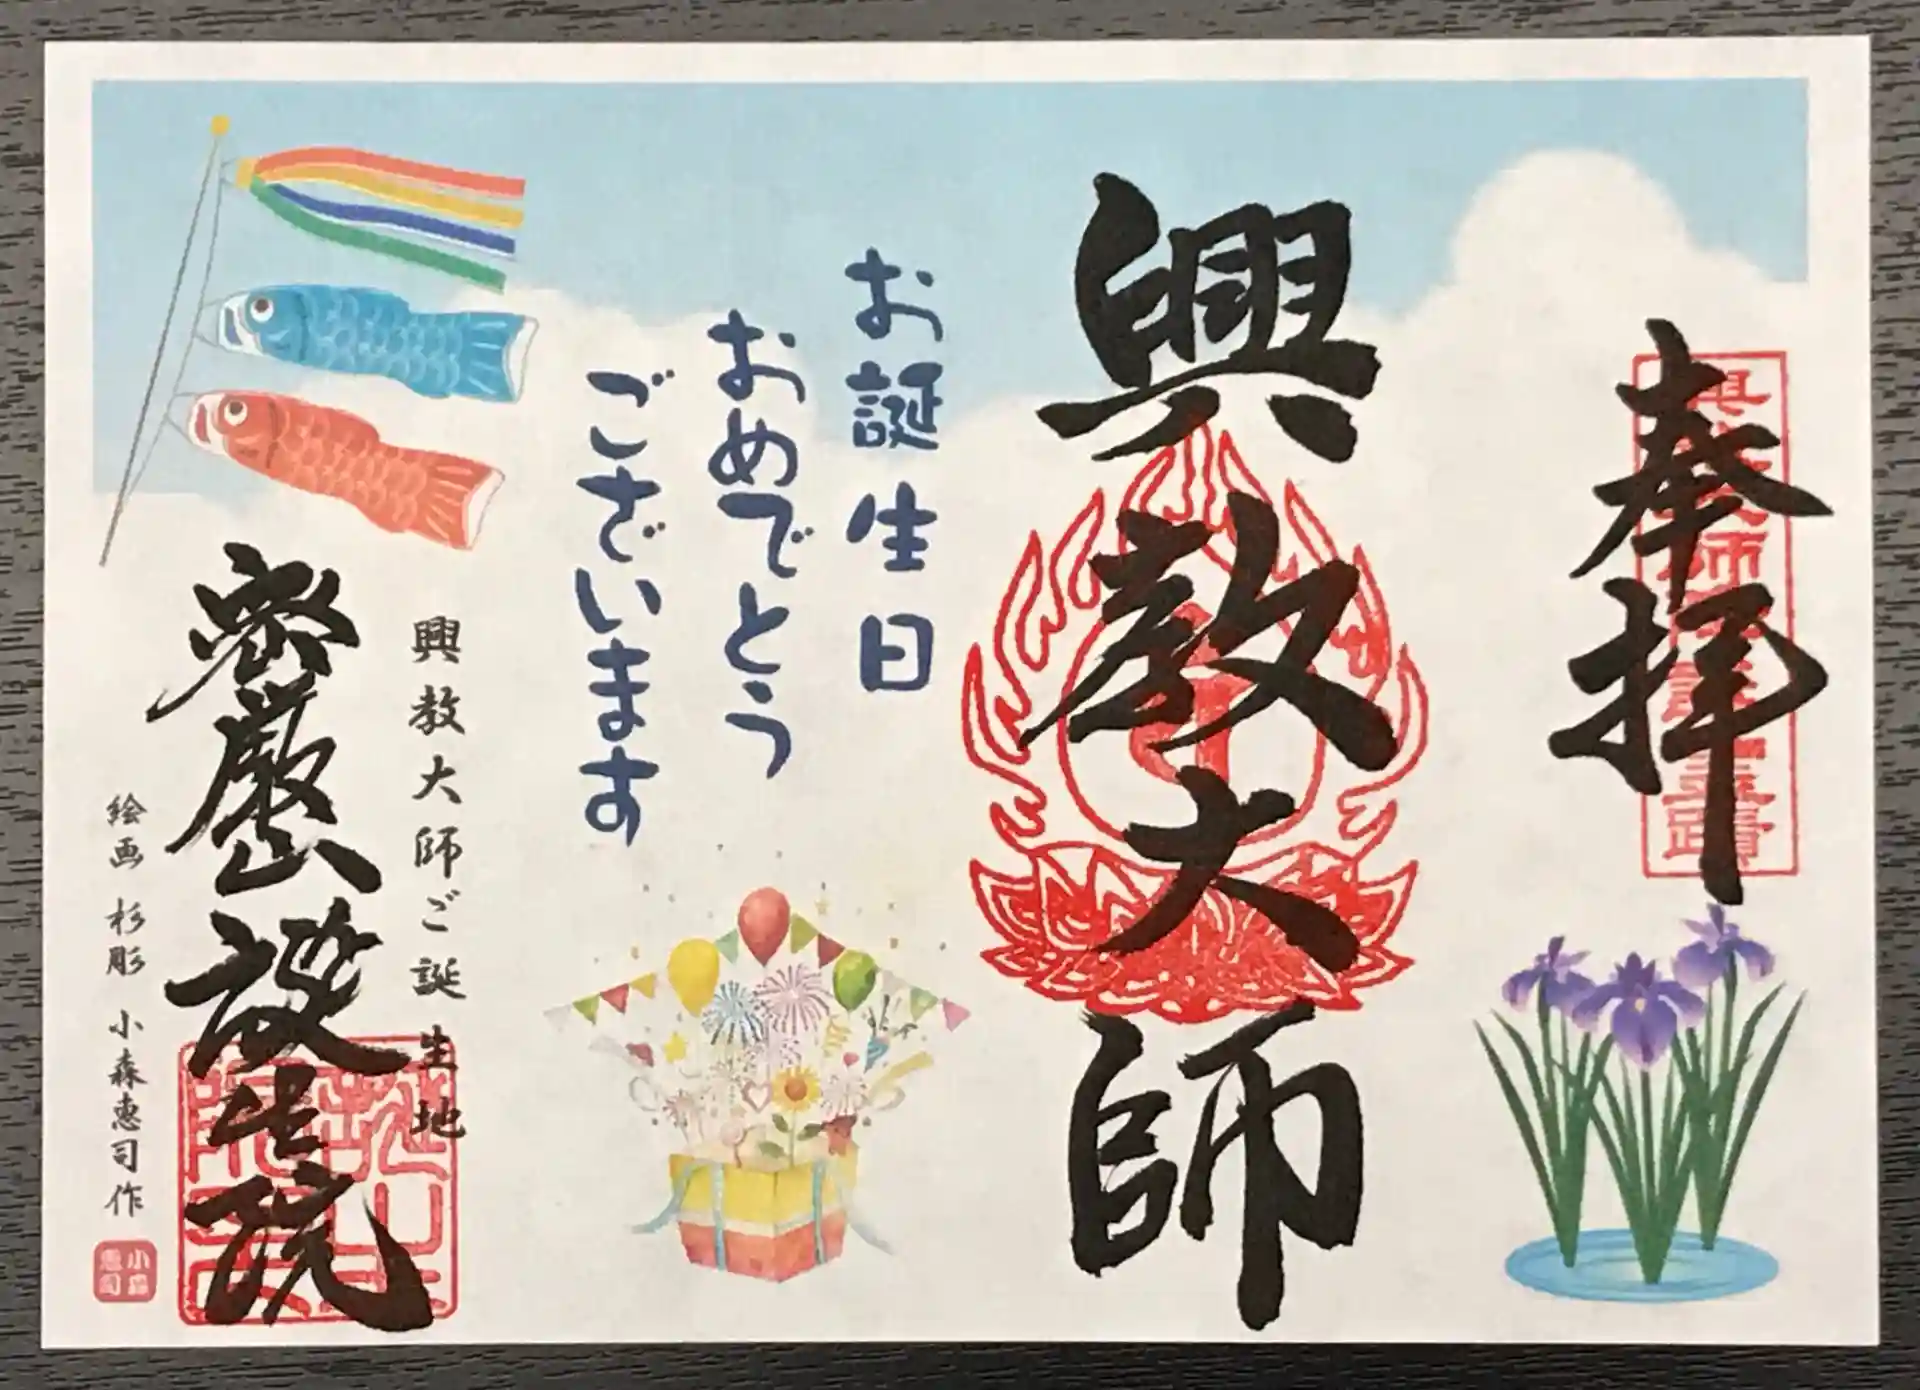 奉拝
興教大師
お誕生日
おめでとう
ございます
興教大師ご誕生地
密厳山誕生院
絵画 杉彫 小森恵司作
小森
恵司